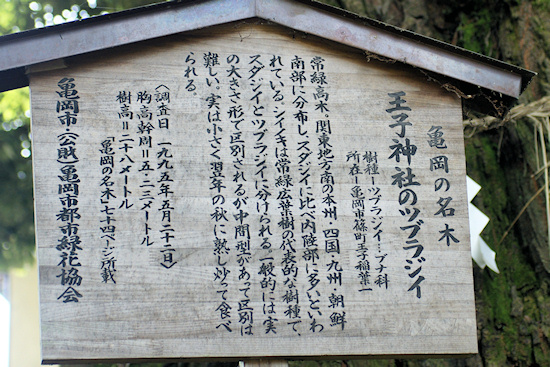 亀岡の名木
王子神社のツブラジイ
樹種＝ツブラジイ＝ブナ科
所在＝亀岡市篠町王子稲葉一
常緑高木。関東地方南の本州、四国・九州、朝鮮
南部に分布し、スダジイに比べ内陸部に多いといわ
れている。シイノキは常緑広葉樹の代表的な樹種で、
スダジイとツブラジイに分けられる。一般的には実
の大きさ形で区別されるが中間型があって区別は
難しい。実は小さく翌年の秋に熟し炒って食べ
られる。
〈調査日 一九九五年五月二十二日〉
胸高幹周＝五・二三メートル
樹高＝二十八メートル
「亀岡の名木」七十四ページ所載
亀岡市・(公財)亀岡市都市緑花協会